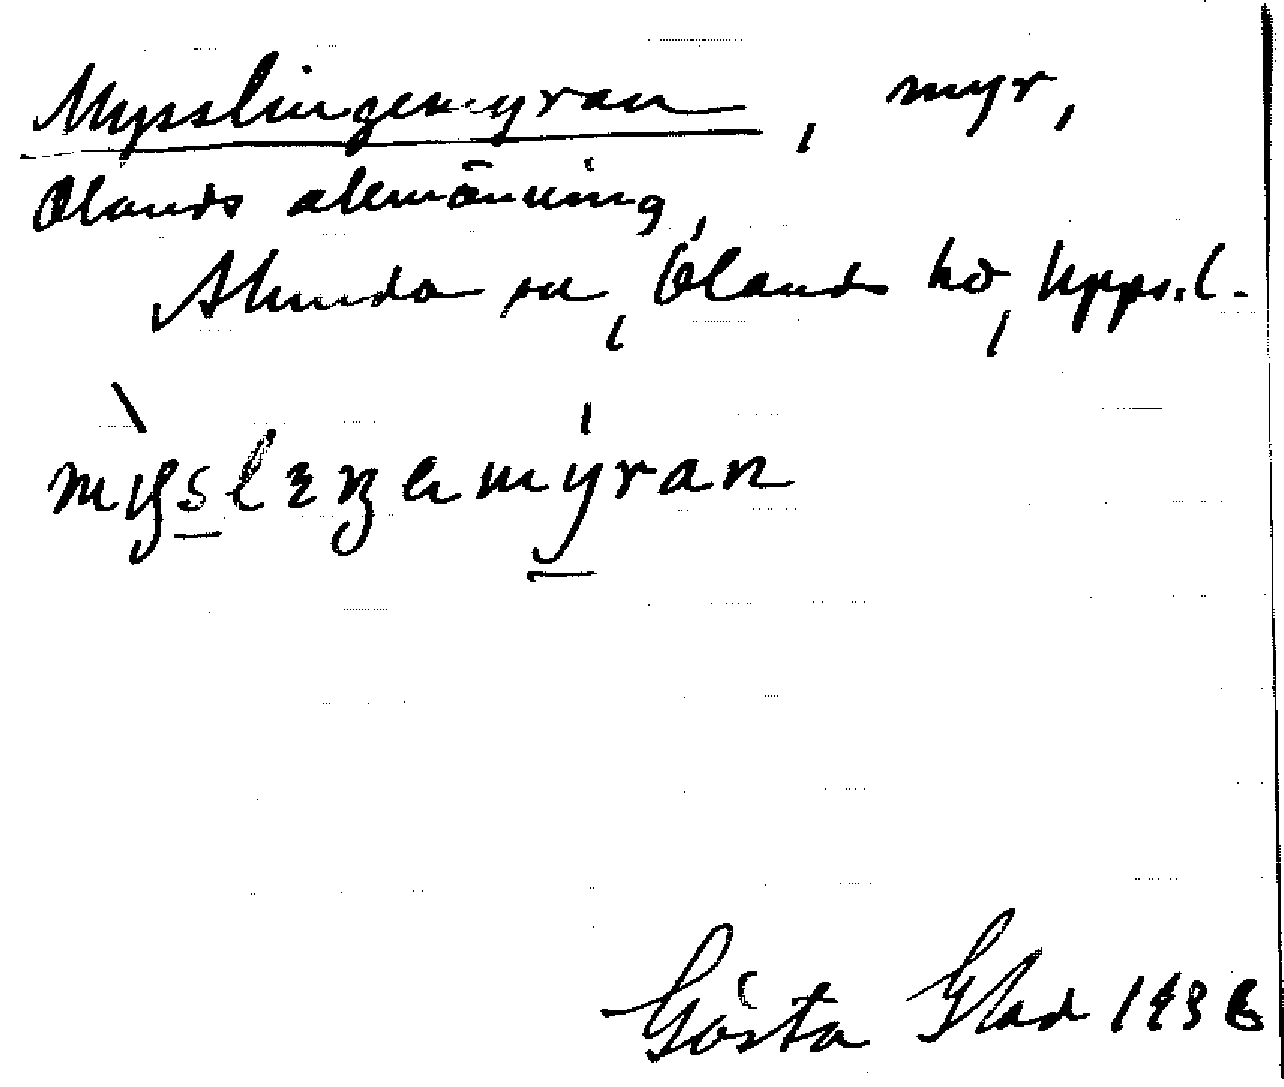 Mysslingemyran, myr,
Olands allmänning,
Alunda sn, Olands hd, Upps.l.
mysslɪŋemyran
Gösta Glad 1936